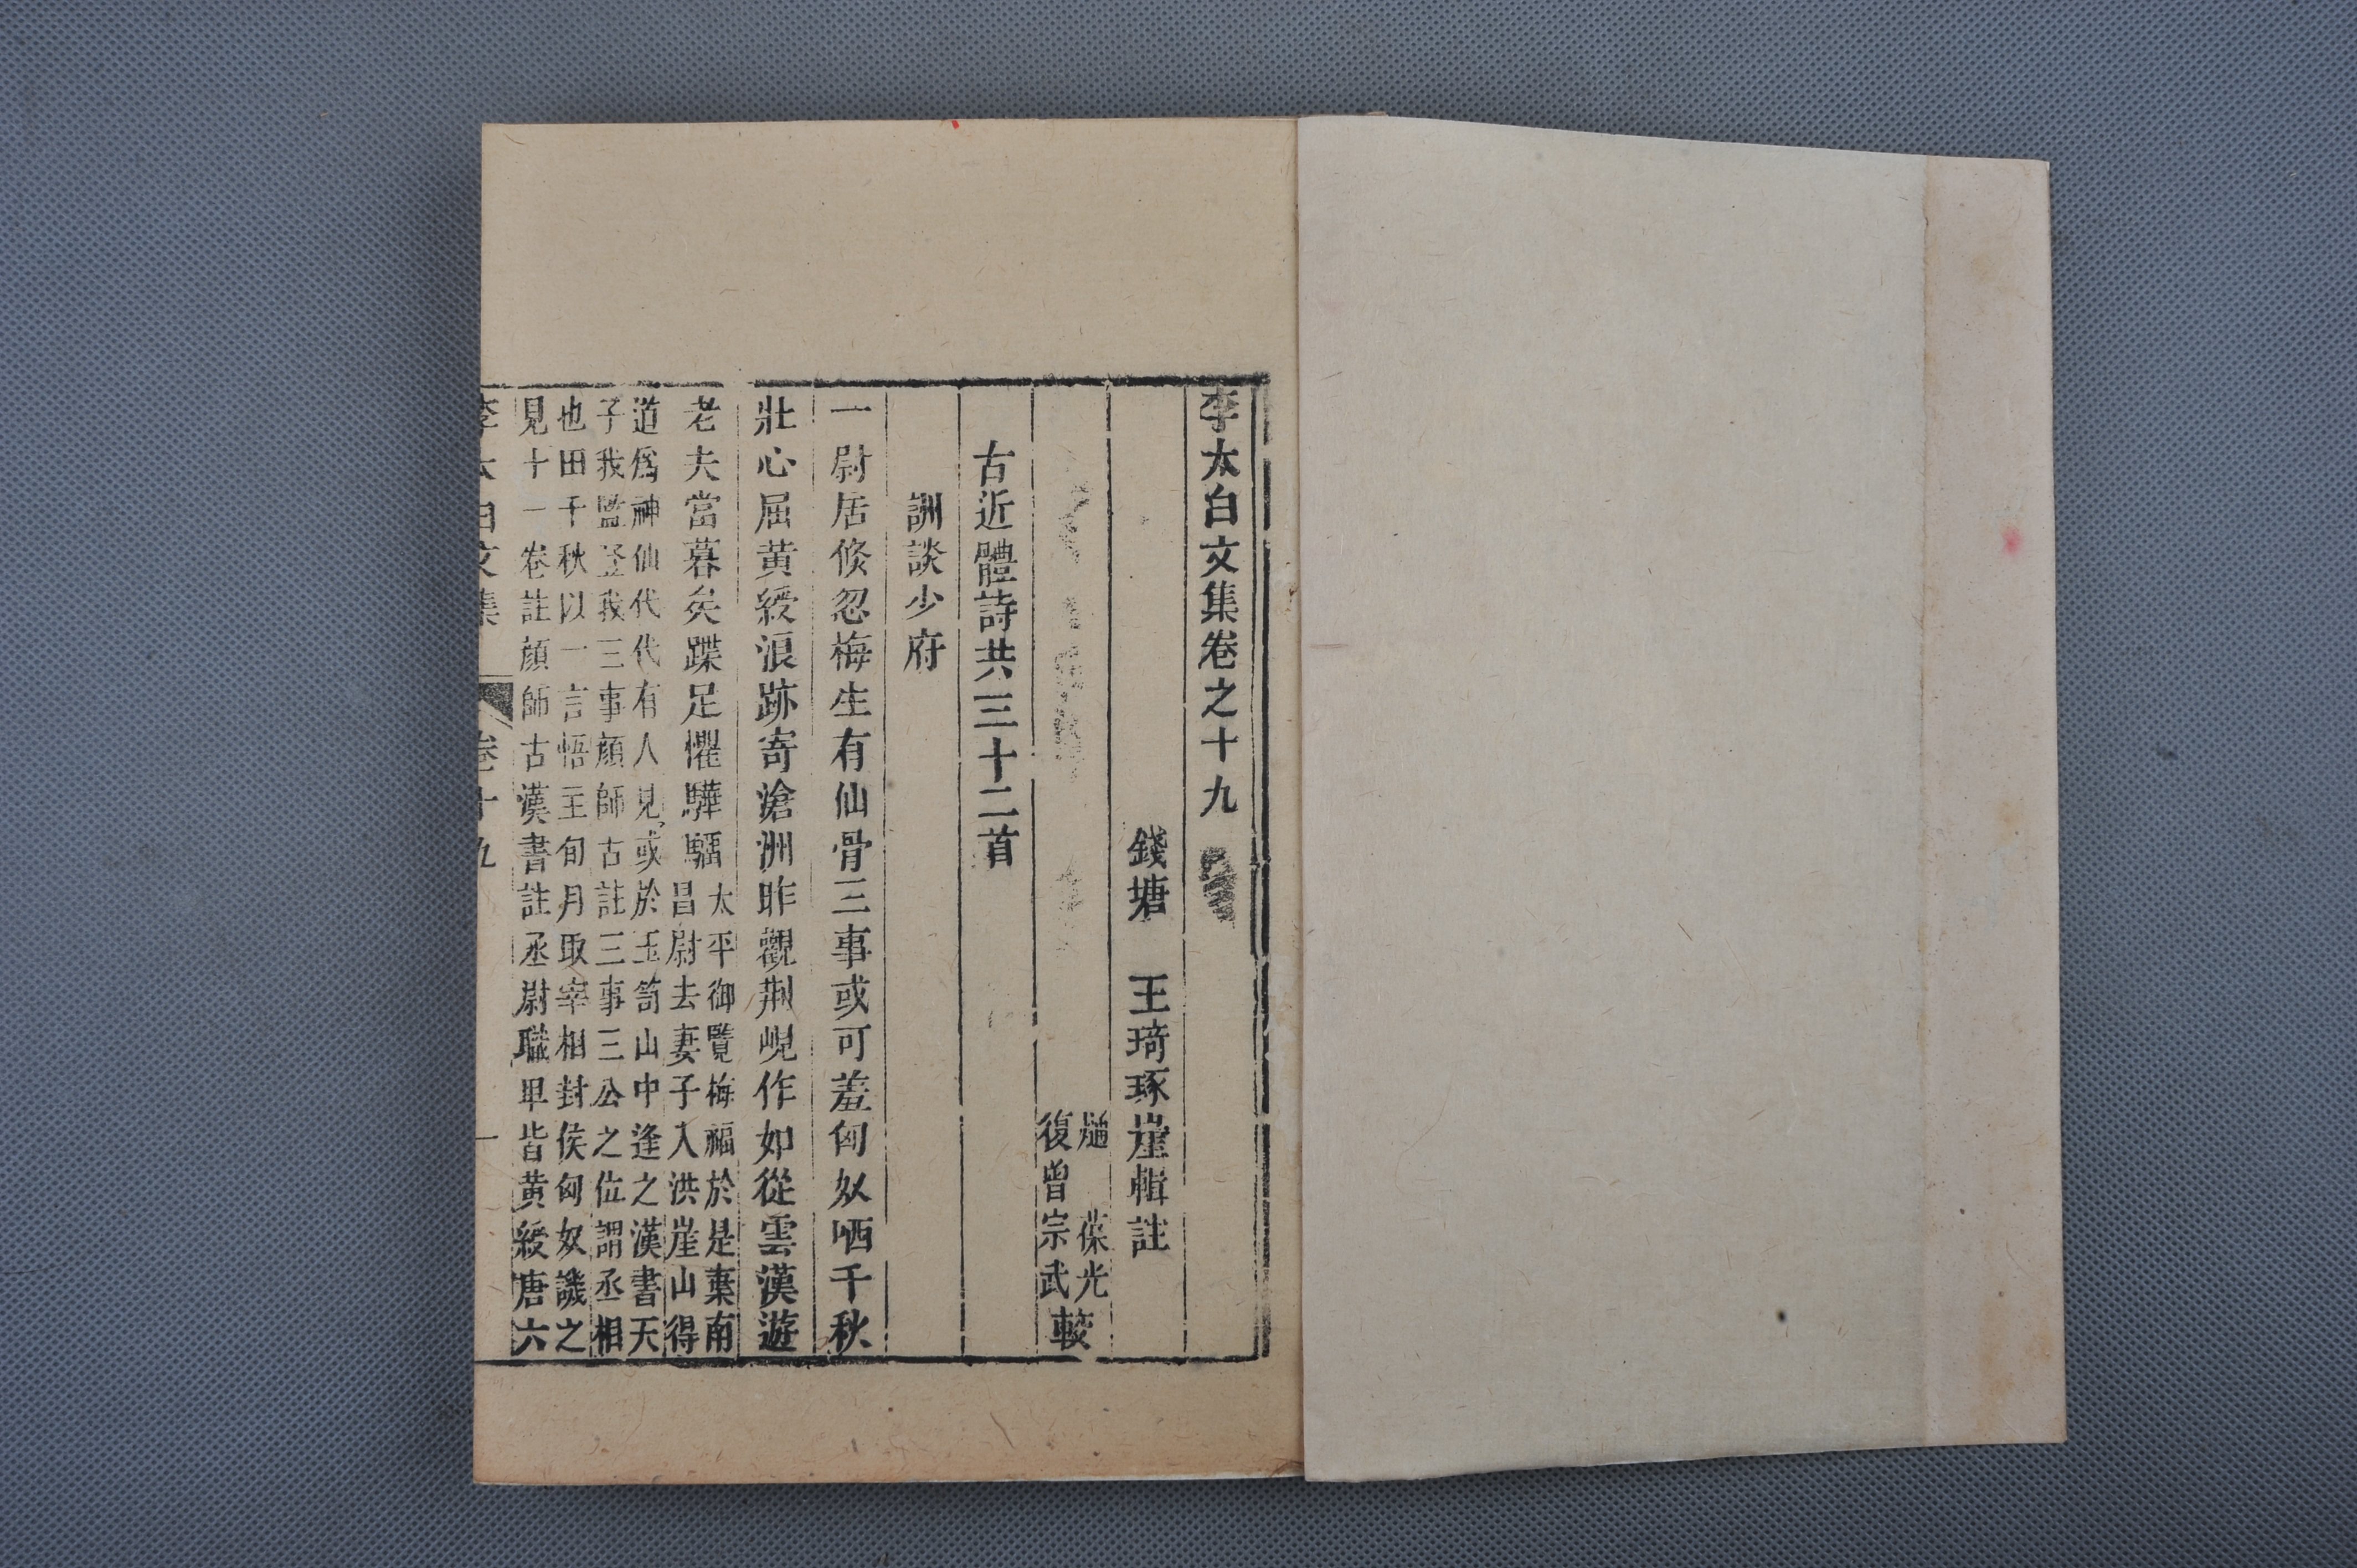 李太白文集卷之十九
錢塘 王琦琢崖輯註
縋 葆光
復曾宗武較
古近體詩共三十二首
詶談少府
一尉居倐忽梅生有仙骨三事或可羞匈奴哂千秋
壯心屈黃綬浪跡寄滄洲昨觀荆峴作如從雲漢遊
老夫當暮矣蹀足懼驊騮
太平御覽梅福於是棄南
昌尉去妻子入洪崖山得
道爲神仙代代有人見或於玉笥山中逢之漢書天
子我監登我三事顏師古註三事三公之位謂丞相
也田千秋以一言悟主旬月取宰相封侯匈奴譏之
見十一卷註顏師古漢書註丞尉職卑皆黃綬唐六
李太白文集 卷十九 一